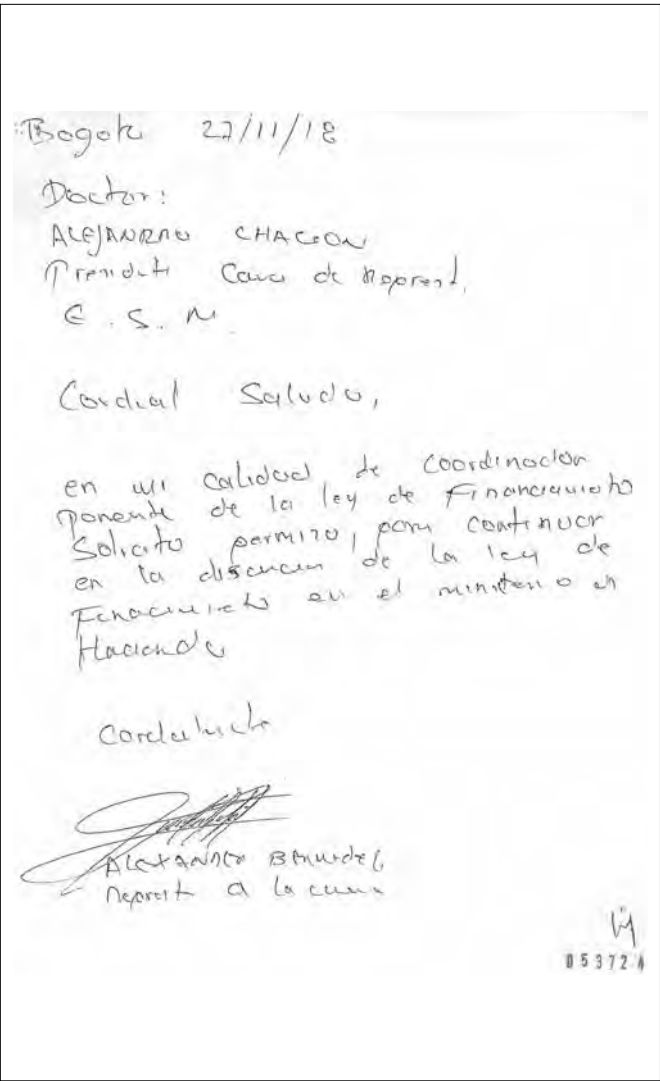 Bogota 27/11/18
Doctor:
ALEJANDRO CHACON
President Cama de Represt.
E. S. M.
Cordial Saludo,
en mi calidad de coordinador
ponente de la ley de Financiamiento
Solicito permiso, para continuar
en la discusion de la ley de
Financiamiento en el ministerio en
Hacienda
Cordialmente
ALEXANDER BERMUDEZ
Represt a la cama
05372